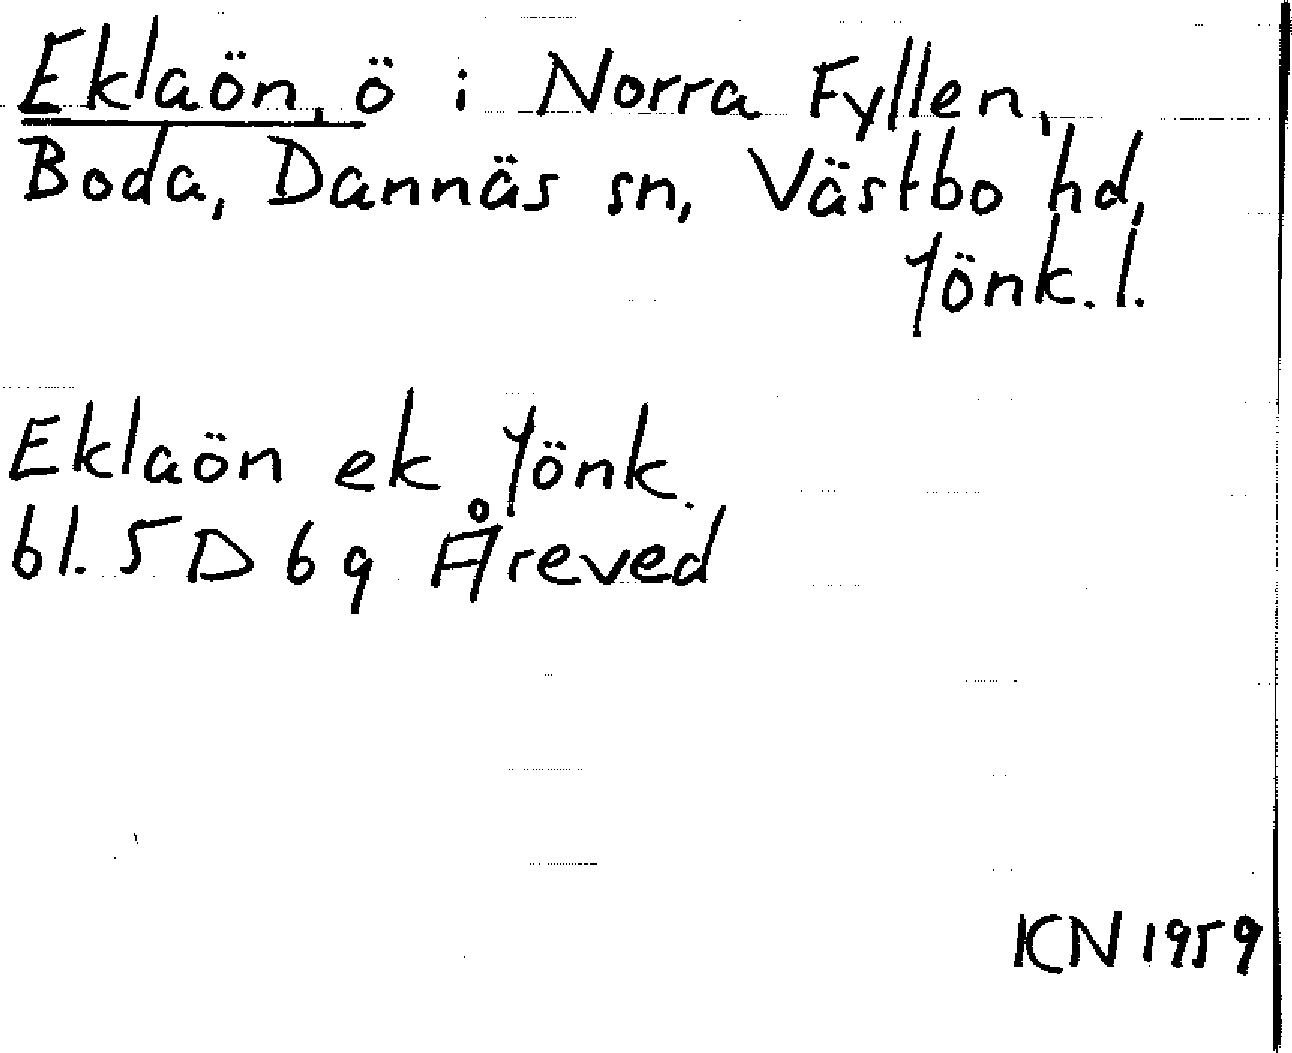 Eklaön, ö i Norra Fyllen,
Boda, Dannäs sn, Västbo hd,
Jönk. l.
Eklaön ek Jönk.
bl. 5 D 6 g Åreved
KN 1959